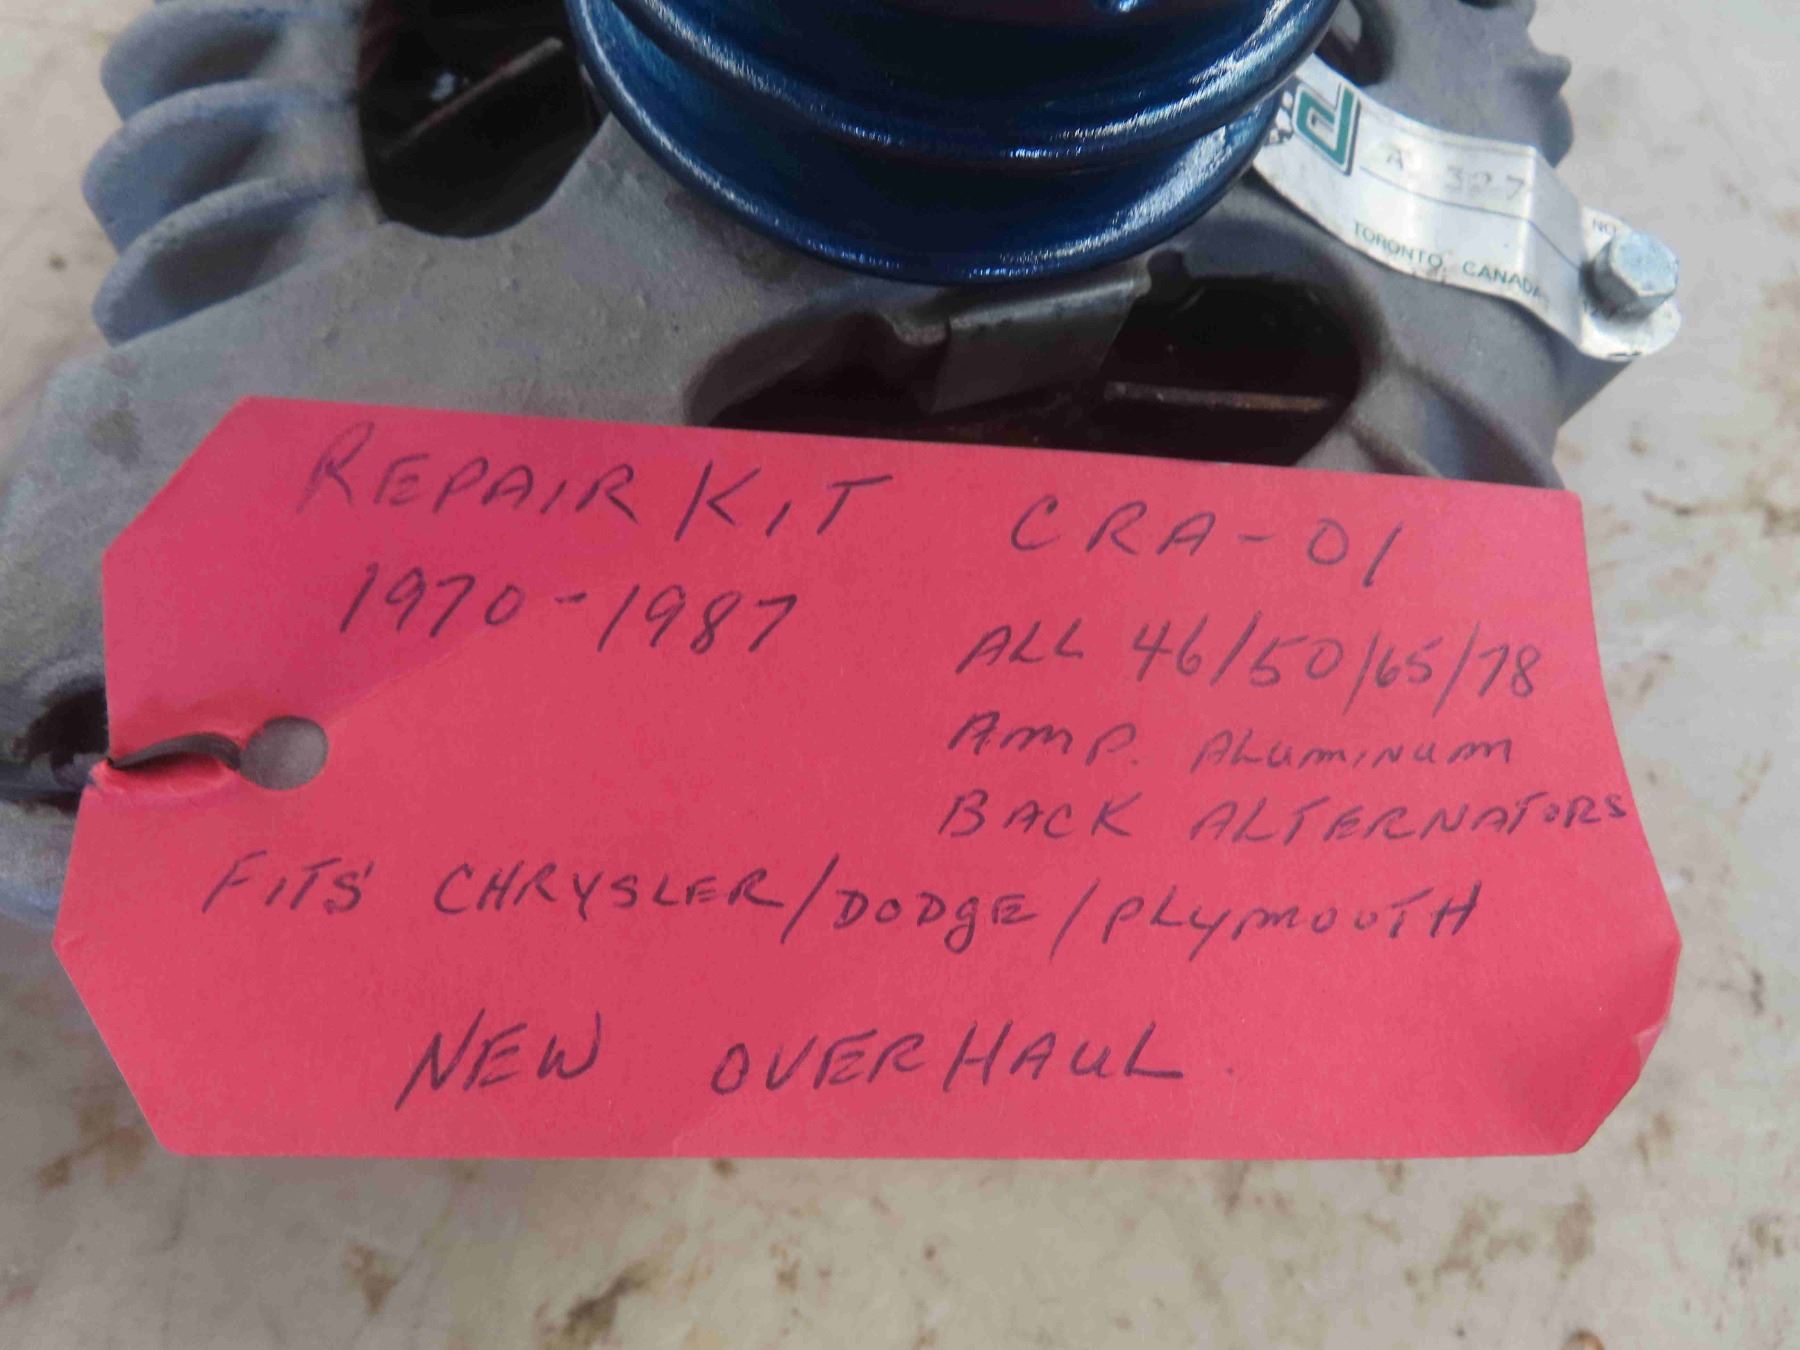 A 327
NO
TORONTO CANADA
REPAIR KIT CRA-01
1970-1987
ALL 46/50/65/78
AMP. ALUMINUM
BACK ALTERNATORS
FITS CHRYSLER/DODGE/PLYMOUTH
NEW OVERHAUL.